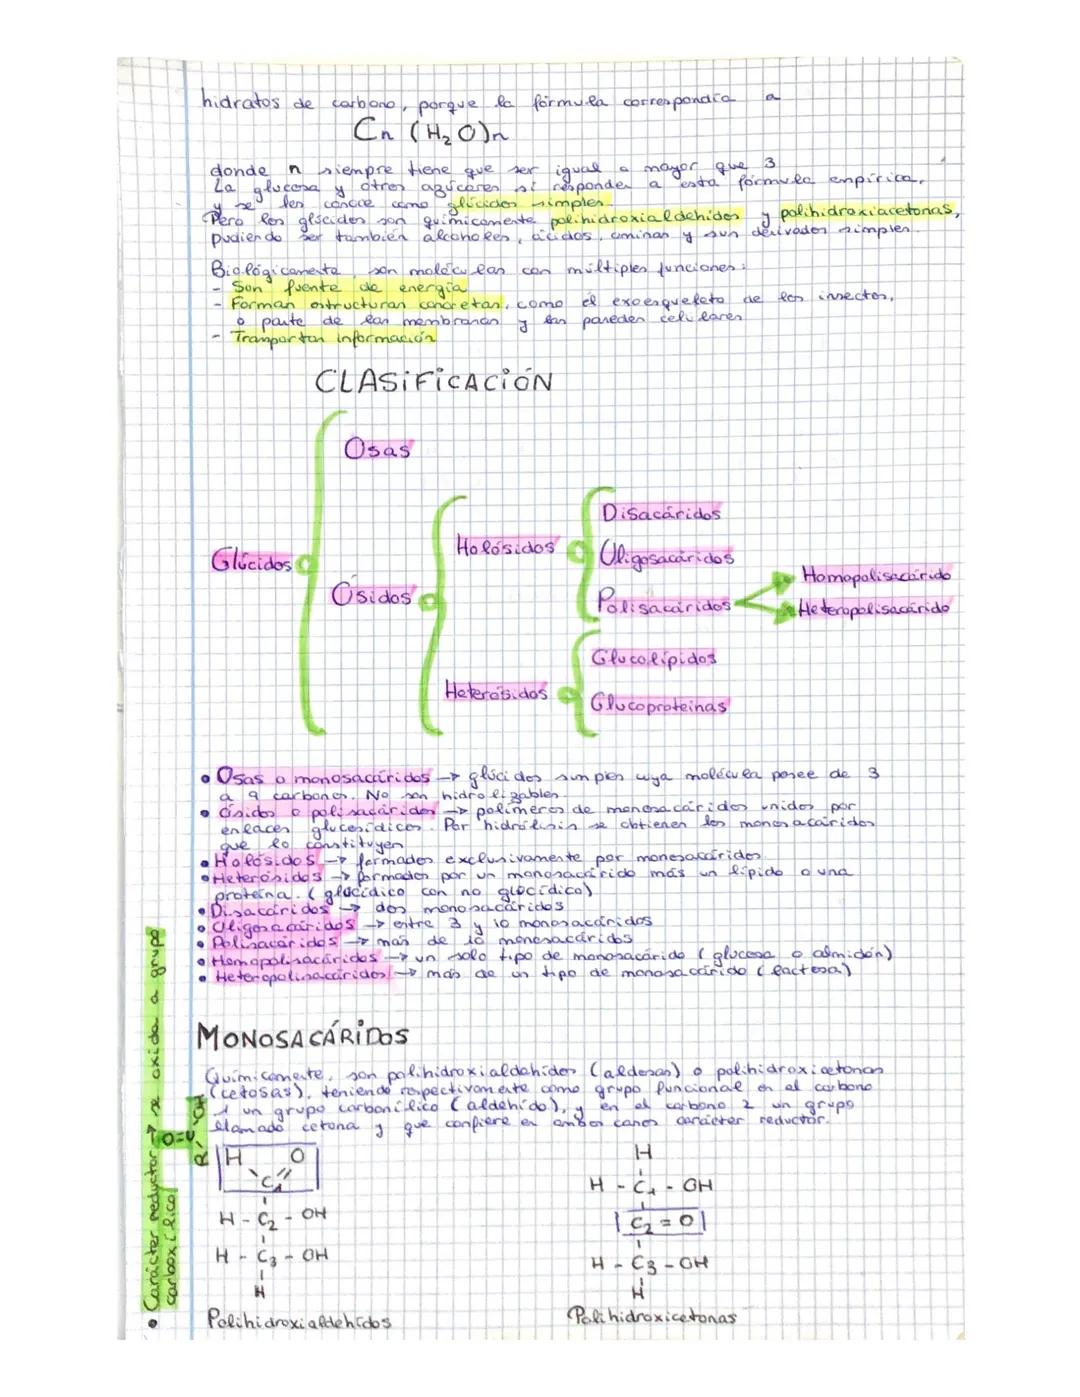 hidratos de carbono, porque la fórmula correspondía a
Cn (H₂O)n
donde n siempre tiene que ser igual o mayor que 3
La glucosa y otros azúcares sí responden a esta fórmula empírica,
y se les conoce como glúcidos simples.
Pero los glúcidos son químicamente polihidroxialdehídos y polihidroxiacetonas,
pudiendo ser también alcoholes, ácidos, aminas y sus derivados simples.
Biológicamente, son moléculas con múltiples funciones:
- Son fuente de energía
- Forman estructuras concretas, como el exoesqueleto de los insectos,
o parte de las membranas y las paredes celulares
- Tranportan información
CLASIFICACIÓN
Osas
Disacáridos
Holósidos
Glúcidos
Oligosacáridos
Homopolisacárido
Ósidos
Polisacáridos
Heteropolisacárido
Glucolípidos
Heterósidos
Glucoproteínas
• Osas o monosacáridos → glúcidos simples cuya molécula posee de 3
a 9 carbonos. No son hidrolizables.
• Ósidos o polisacáridos → polímeros de monosacáridos unidos por
enlaces glucosídicos. Por hidrólisis se obtienen los monosacáridos
que lo constituyen
• Holósidos → formados exclusivamente por monosacáridos.
• Heterósidos → formados por un monosacárido más un lípido o una
proteína. (glucídico con no glucídico)
• Disacáridos → dos monosacáridos
• Oligosacáridos → entre 3 y 10 monosacáridos
• Polisacáridos → más de 10 monosacáridos
• Homopolisacáridos → un solo tipo de monosacárido (glucosa o almidón)
• Heteropolisacáridos → más de un tipo de monosacárido (lactosa)
MONOSACÁRIDOS
Químicamente, son polihidroxialdehídos (aldosas) o polihidroxicetonas
(cetosas), teniendo respectivamente como grupo funcional en el carbono
1 un grupo carbonílico (aldehído), y en el carbono 2 un grupo
llamado cetona y que confiere en ambos casos carácter reductor.
• Carácter reductor → se oxida a grupo
carboxílico
R - C - OH
O =
H O
C₁
H - C₂ - OH
H - C₃ - OH
H
Polihidroxialdehídos
H
H - C₁ - OH
C₂ = O
H - C₃ - OH
H
Polihidroxicetonas